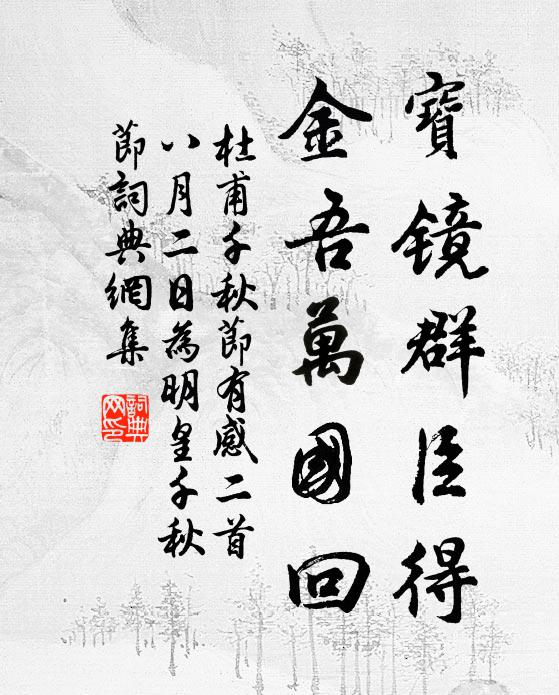 寶鏡群臣得
金吾萬國回
杜甫千秋節有感二首
八月二日為明皇千秋
節詞典網集
詞典
网印